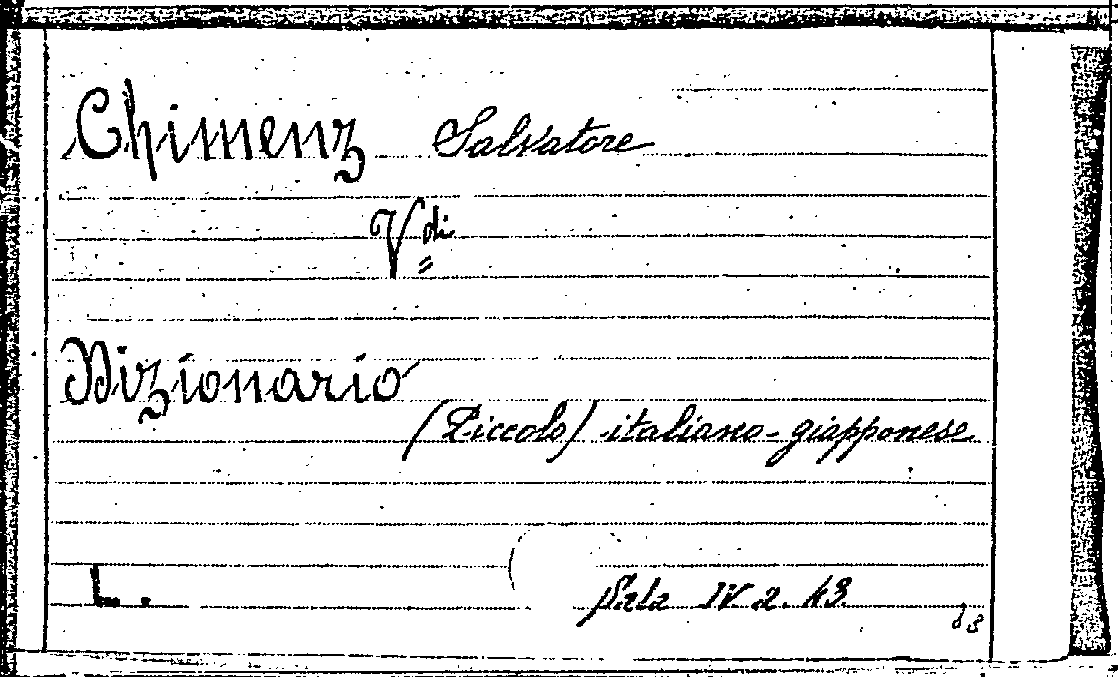 Chimenz Salvatore
Vdi
Dizionario
(Piccolo) italiano-giapponese
L. Sala IV 2. 43.